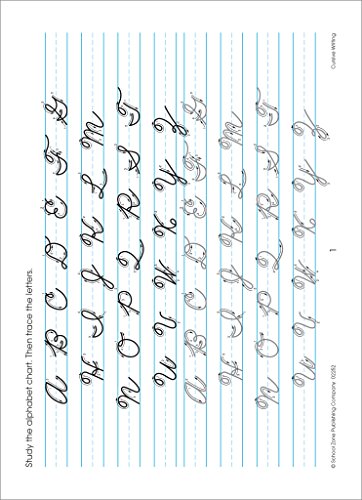 Study the alphabet chart. Then trace the letters.
A B C D E F G
H I J K L M
N O P Q R S T
U V W X Y Z
A B C D E F G
H I J K L M
N O P Q R S T
U V W X Y Z
© School Zone Publishing Company 10252 1 Cursive Writing